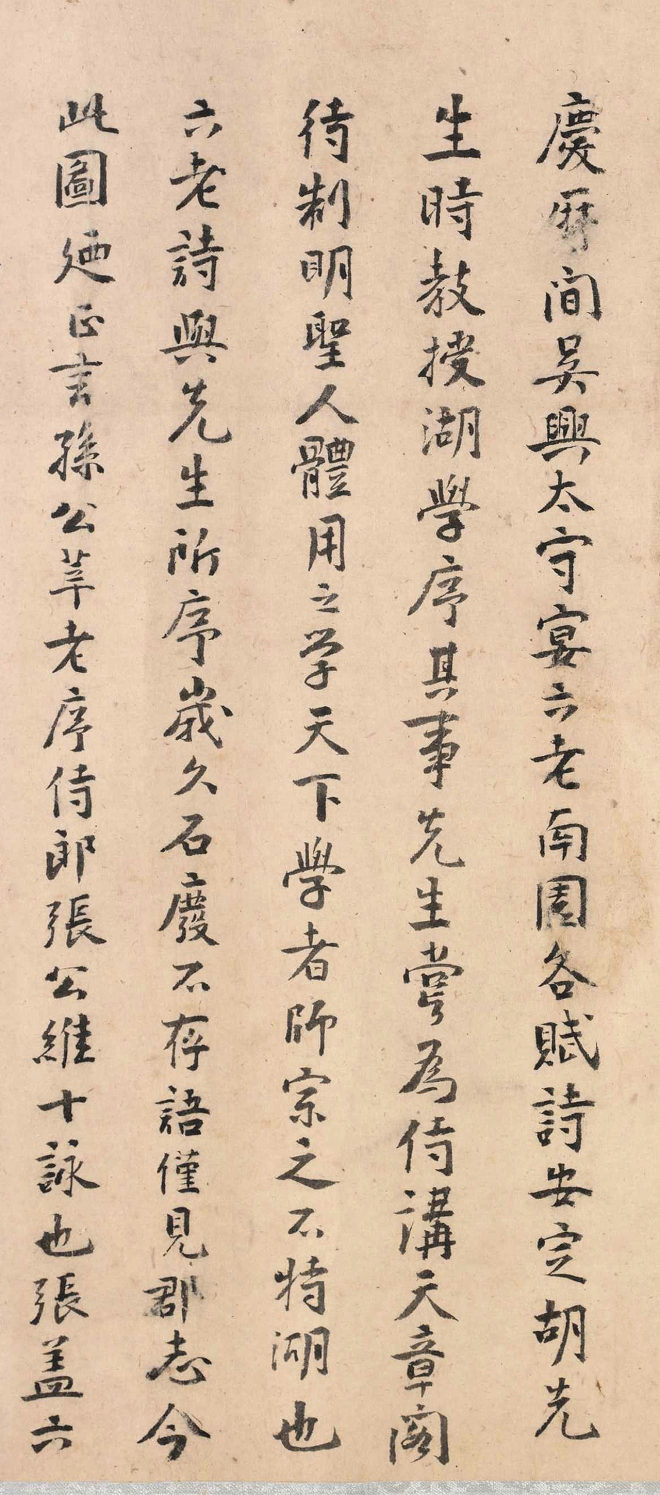 慶曆間吴興太守宴六老南園各賦詩安定胡先
生時教授湖學序其事先生嘗為侍講天章閣
待制明聖人體用之学天下學者師宗之不特湖也
六老詩與先生所序歲久石廢不存語僅見郡志今
此圖廼正言孫公莘老序侍郎張公維十詠也張盖六